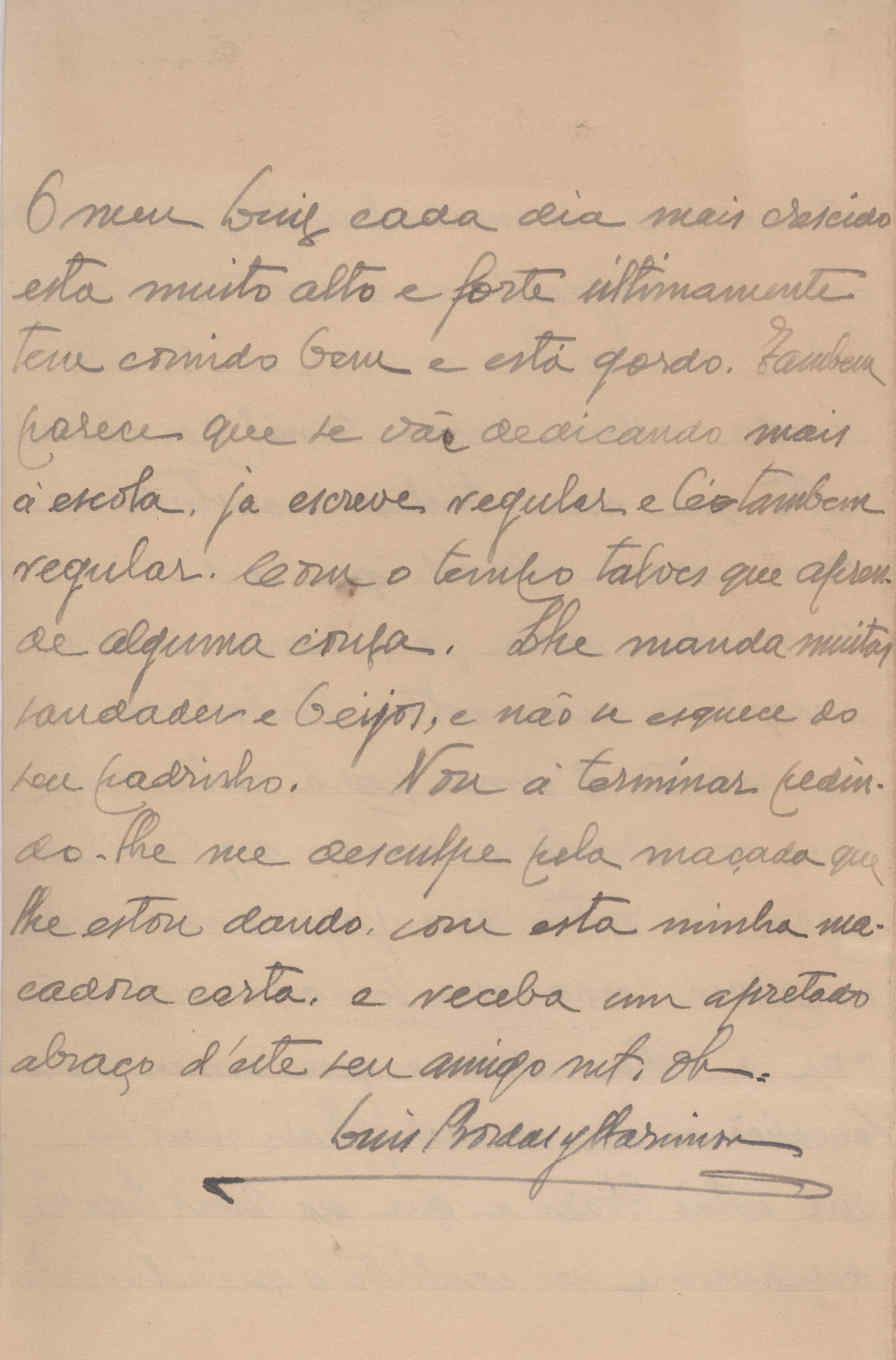 O meu Luiz cada dia mais crescido
esta muito alto e forte últimamente
tem comido bem e está gordo. Tambem
parece que se vãe dedicando mais
á escola. ja escreve regular e lê tambem
regular. Com o tempo talves que apren-
de alguma coisa. Lhe manda muitas
saudades e beijos, e não se esquece do
seu padrinho. Vou á terminar pedin-
do-lhe me desculpe pela maçada que
lhe estou dando. com esta minha ma-
cadora carta. e receba um apretado
abraço d'este seu amigo mt. ob.
Luis Bordas y